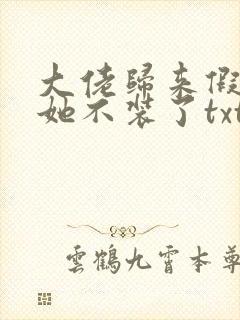 大佬歸來假
她不裝了txt
雲鶴九霄本尊